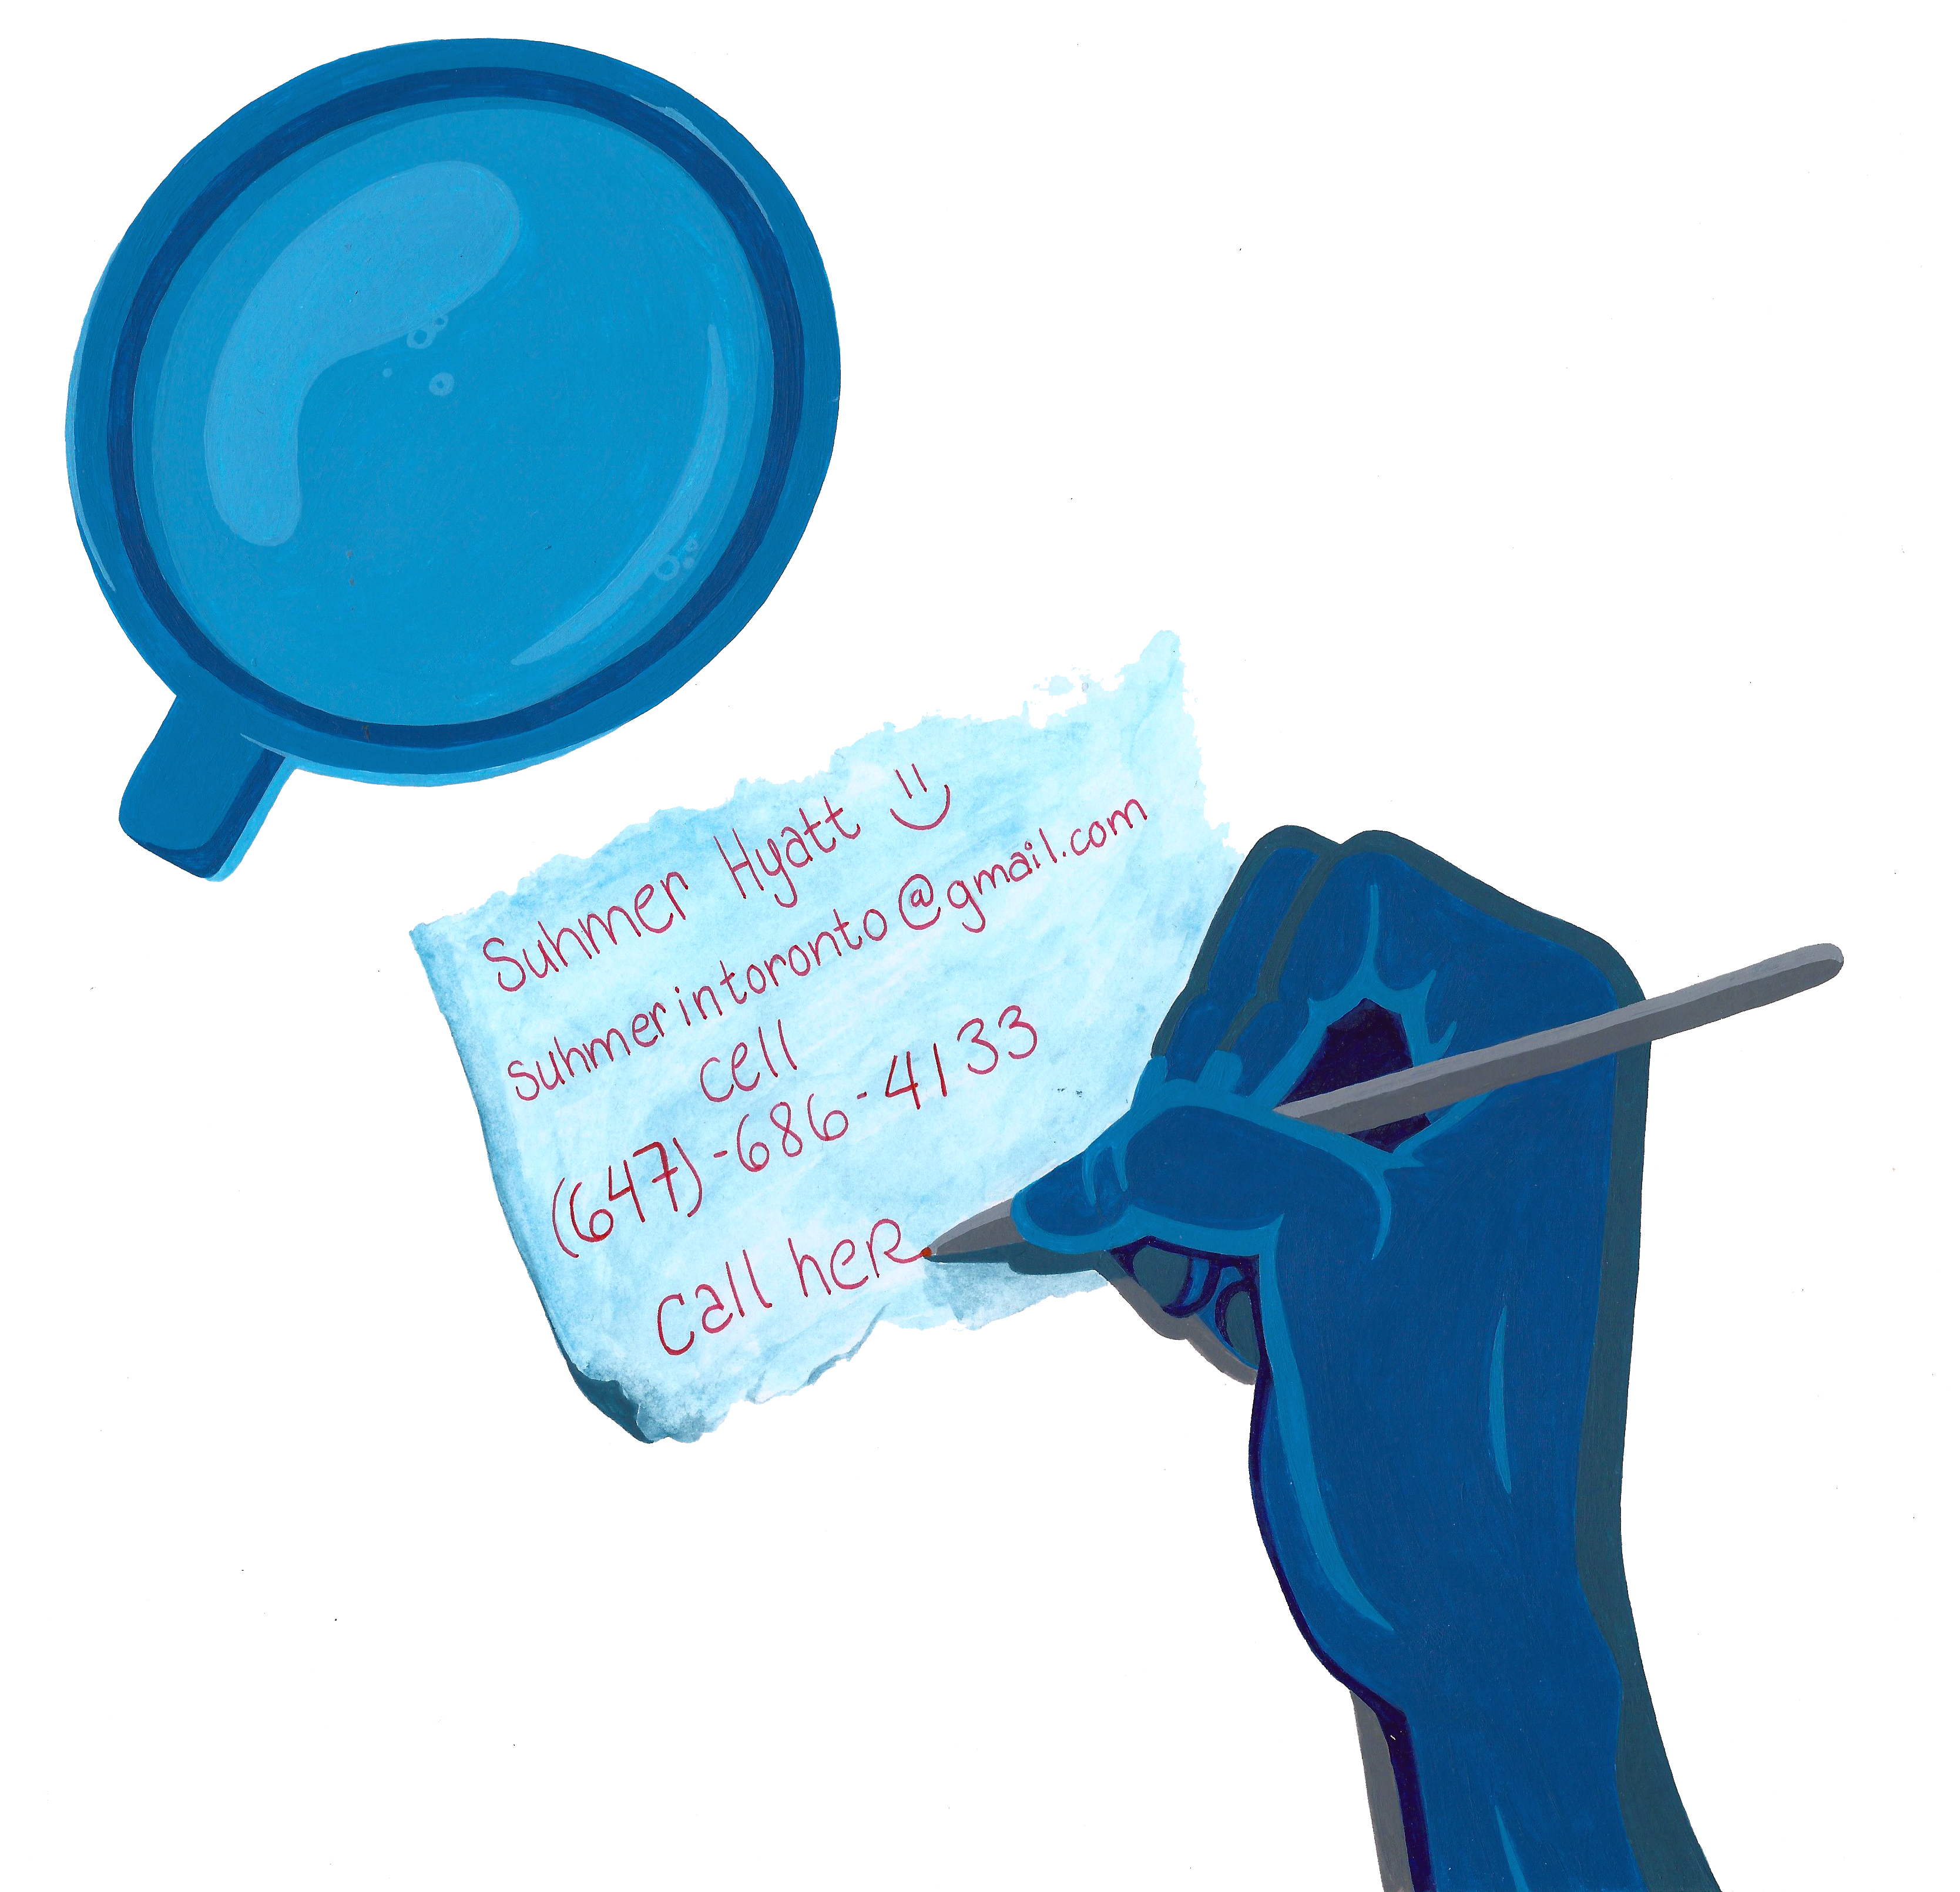 Suhmer Hyatt
suhmerintoronto@gmail.com
cell
(647)-686-4133
Call here